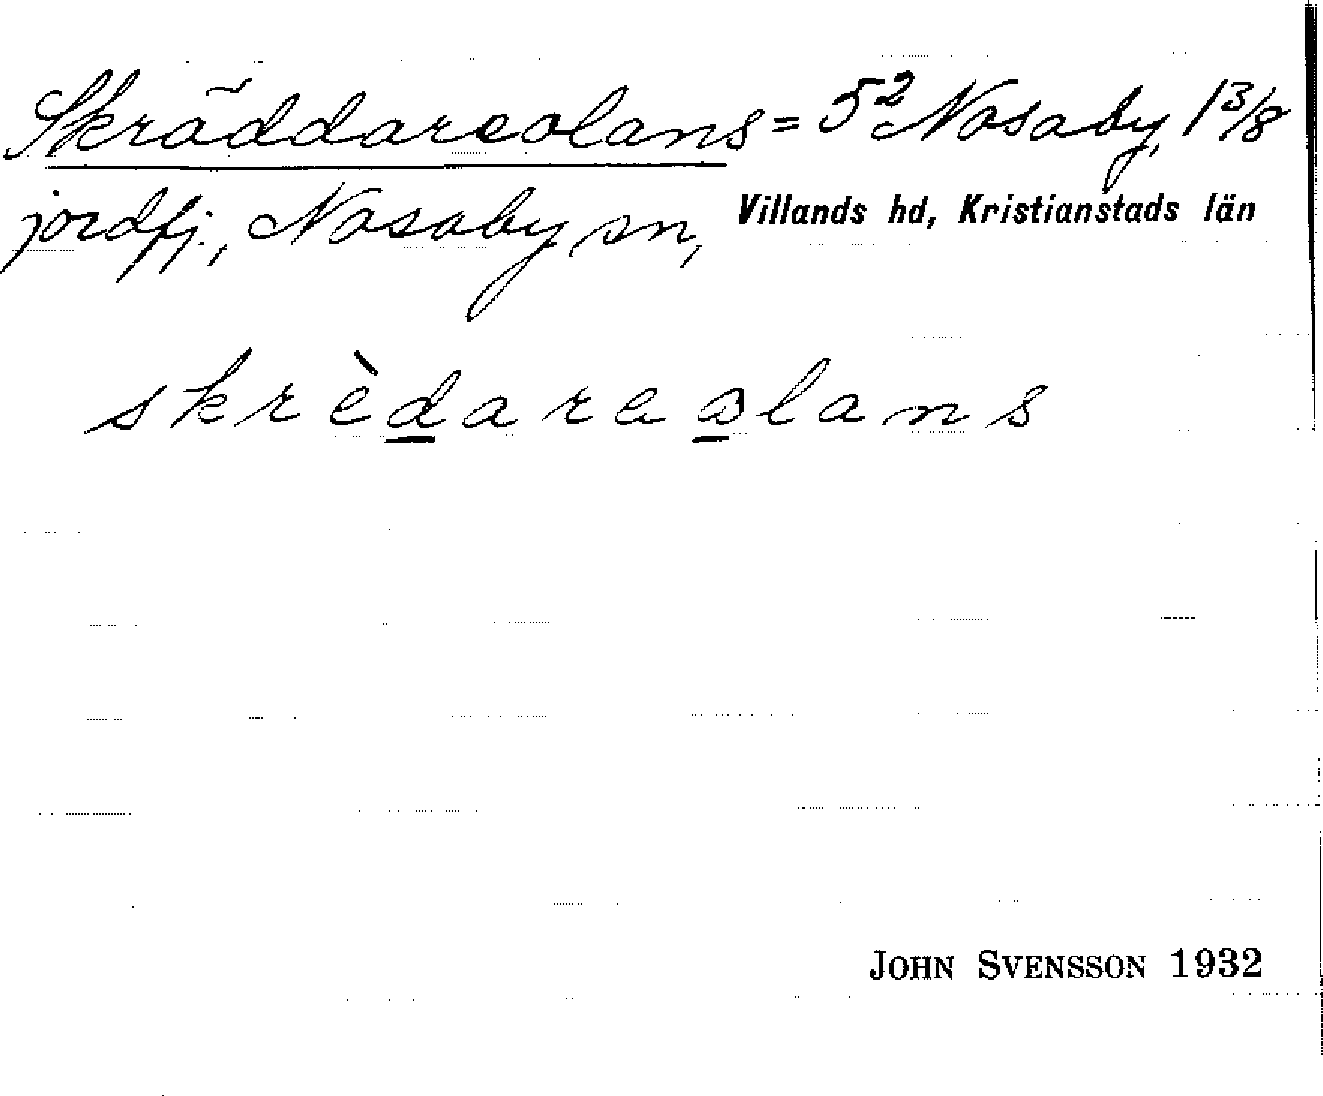 Skräddareolans = 5² Nosaby, 13/8
jordfj., Nosaby sn, Villands hd, Kristianstads län
skrèdarealans
JOHN SVENSSON 1932